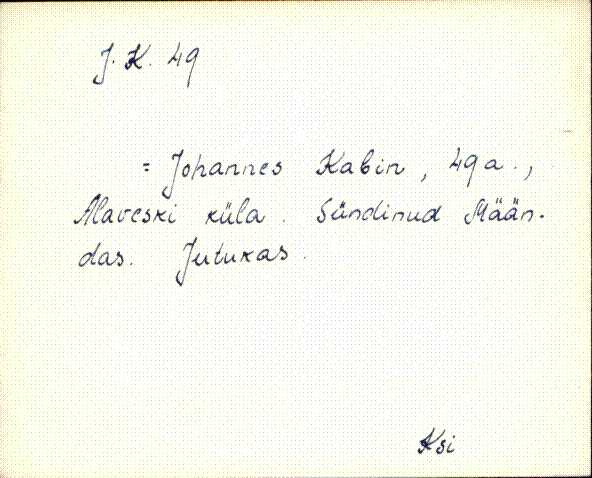 J. K. 49
= Johannes Kabin, 49 a.,
Alaveski küla. Sündinud Mään-
das. Jutukas.
Ksi